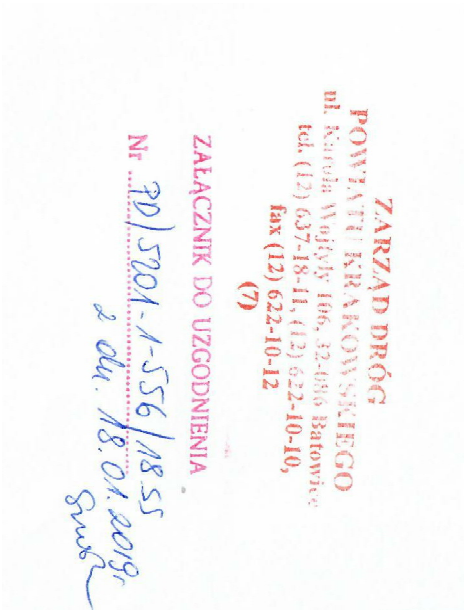 ZARZĄD DRÓG
POWIATU KRAKOWSKIEGO
ul. Karola Wojtyły 106, 32-086 Batowice
tel. (12) 637-18-11, (12) 622-10-10,
fax (12) 622-10-12
(7)
ZAŁĄCZNIK DO UZGODNIENIA
Nr PD/5201-1-556/18.55
z dn. 18.01.2019r